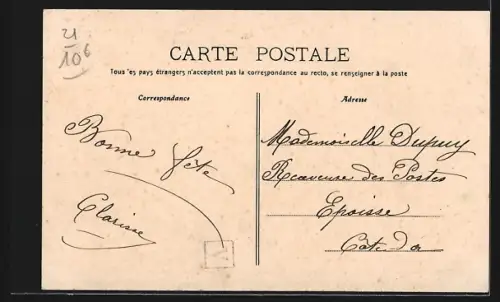 21
10 6
CARTE POSTALE
Tous les pays étrangers n'acceptent pas la correspondance au recto, se renseigner à la poste
Correspondance
Adresse
Bonne fête
Clarisse
Mademoiselle Dupuy
Receveuse des Postes
Epoisse
Côte d'or